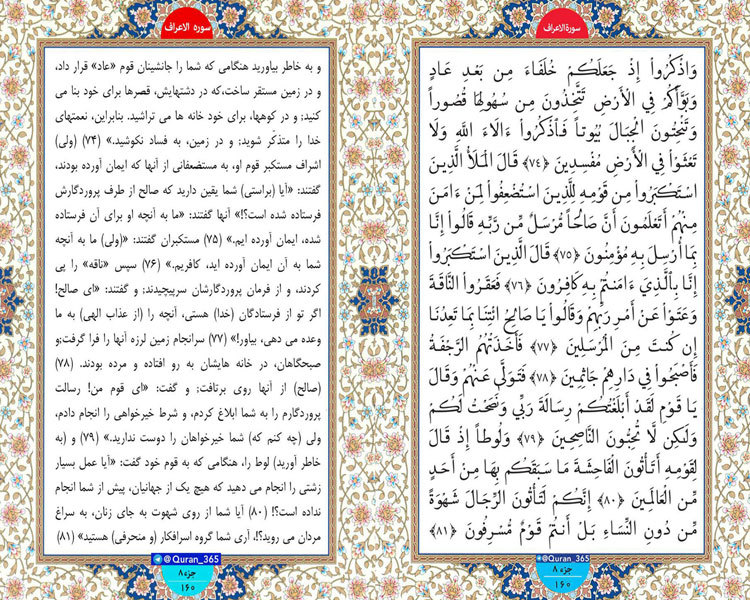 سورة الاعراف
وَاذْكُرُواْ إِذْ جَعَلَكُمْ خُلَفَاءَ مِن بَعْدِ عَادٍ
وَبَوَّأَكُمْ فِي الأَرْضِ تَتَّخِذُونَ مِن سُهُولِهَا قُصُوراً
وَتَنْحِتُونَ الْجِبَالَ بُيُوتاً فَاذْكُرُواْ ءَالَاءَ اللَّهِ وَلَا
تَعْثَوْاْ فِي الأَرْضِ مُفْسِدِينَ ﴿٧٤﴾ قَالَ الْمَلَأُ الَّذِينَ
اسْتَكْبَرُواْ مِن قَوْمِهِ لِلَّذِينَ اسْتُضْعِفُواْ لِمَنْ ءَامَنَ
مِنْهُمْ أَتَعْلَمُونَ أَنَّ صَالِحاً مُّرْسَلٌ مِّن رَّبِّهِ قَالُواْ إِنَّا
بِمَا أُرْسِلَ بِهِ مُؤْمِنُونَ ﴿٧٥﴾ قَالَ الَّذِينَ اسْتَكْبَرُواْ
إِنَّا بِالَّذِيَ ءَامَنتُم بِهِ كَافِرُونَ ﴿٧٦﴾ فَعَقَرُواْ النَّاقَةَ
وَعَتَوْاْ عَنْ أَمْرِ رَبِّهِمْ وَقَالُواْ يَا صَالِحُ ائْتِنَا بِمَا تَعِدُنَا
إِن كُنتَ مِنَ الْمُرْسَلِينَ ﴿٧٧﴾ فَأَخَذَتْهُمُ الرَّجْفَةُ
فَأَصْبَحُواْ فِي دَارِهِمْ جَاثِمِينَ ﴿٧٨﴾ فَتَوَلَّى عَنْهُمْ وَقَالَ
يَا قَوْمِ لَقَدْ أَبْلَغْتُكُمْ رِسَالَةَ رَبِّي وَنَصَحْتُ لَكُمْ
وَلَكِن لَّا تُحِبُّونَ النَّاصِحِينَ ﴿٧٩﴾ وَلُوطاً إِذْ قَالَ
لِقَوْمِهِ أَتَأْتُونَ الْفَاحِشَةَ مَا سَبَقَكُم بِهَا مِنْ أَحَدٍ
مِّن الْعَالَمِينَ ﴿٨٠﴾ إِنَّكُمْ لَتَأْتُونَ الرِّجَالَ شَهْوَةً
مِّن دُونِ النِّسَاءِ بَلْ أَنتُمْ قَوْمٌ مُّسْرِفُونَ ﴿٨١﴾
@Quran_365
جزء ۸
۱۶۰
سوره الاعراف
و به خاطر بیاورید هنگامی که شما را جانشینان قوم «عاد» قرار داد،
و در زمین مستقر ساخت،که در دشتهایش، قصرها برای خود بنا می
کنید; و در کوهها، برای خود خانه ها می تراشید. بنابراین، نعمتهای
خدا را متذکّر شوید; و در زمین، به فساد نکوشید.» (۷۴) (ولی)
اشراف مستکبر قوم او، به مستضعفانی از آنها که ایمان آورده بودند،
گفتند: «آیا (براستی) شما یقین دارید که صالح از طرف پروردگارش
فرستاده شده است؟!» آنها گفتند: «ما به آنچه او برای آن فرستاده
شده، ایمان آورده ایم.» (۷۵) مستکبران گفتند: «(ولی) ما به آنچه
شما به آن ایمان آورده اید، کافریم.» (۷۶) سپس «ناقه» را پی
کردند، و از فرمان پروردگارشان سرپیچیدند; و گفتند: «ای صالح!
اگر تو از فرستادگان (خدا) هستی، آنچه را (از عذاب الهی) به ما
وعده می دهی، بیاور!» (۷۷) سرانجام زمین لرزه آنها را فرا گرفت;و
صبحگاهان، در خانه هایشان به رو افتاده و مرده بودند. (۷۸)
(صالح) از آنها روی برتافت; و گفت: «ای قوم من! رسالت
پروردگارم را به شما ابلاغ کردم، و شرط خیرخواهی را انجام دادم،
ولی (چه کنم که) شما خیرخواهان را دوست ندارید.» (۷۹) و (به
خاطر آورید) لوط را، هنگامی که به قوم خود گفت: «آیا عمل بسیار
زشتی را انجام می دهید که هیچ یک از جهانیان، پیش از شما انجام
نداده است؟! (۸۰) آیا شما از روی شهوت به جای زنان، به سراغ
مردان می روید؟!، آری شما گروه اسرافکار (و منحرفی) هستید» (۸۱)
@Quran_365
جزء ۸
۱۶۰